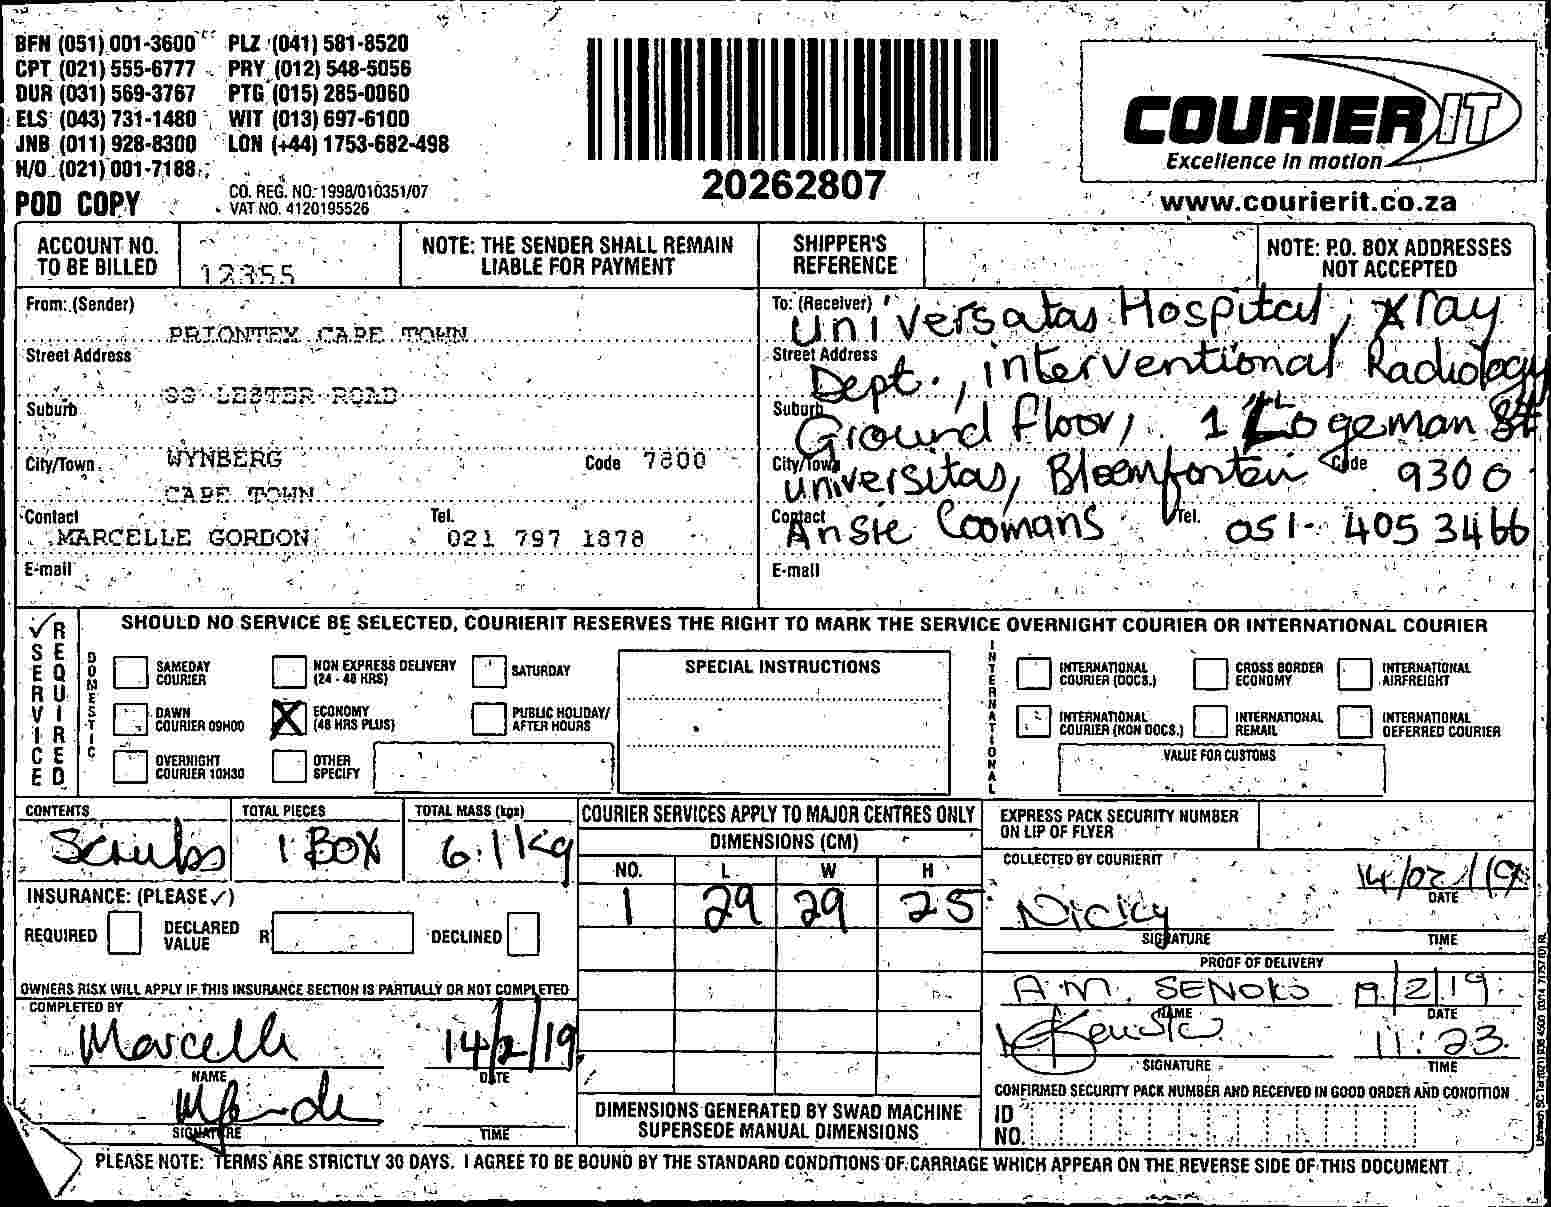 BFN (051) 001-3600 PLZ (041) 581-8520
CPT (021) 555-6777 PRY (012) 548-5056
DUR (031) 569-3767 PTG (015) 285-0060
ELS (043) 731-1480 WIT (013) 697-6100
JNB (011) 928-8300 LON (+44) 1753-682-498
H/O (021) 001-7188
POD COPY
CO. REG. NO. 1998/010351/07
VAT NO. 4120195526
20262807
COURIER IT
Excellence in motion
www.courierit.co.za
ACCOUNT NO.
TO BE BILLED
12355
NOTE: THE SENDER SHALL REMAIN
LIABLE FOR PAYMENT
SHIPPER'S
REFERENCE
NOTE: P.O. BOX ADDRESSES
NOT ACCEPTED
From: (Sender)
PRIONTEX CAPE TOWN
Street Address
LESTER ROAD
Suburb
WYNBERG
City/Town
Code 7800
CAPE TOWN
Contact
MARCELLE GORDON
Tel.
021 797 1878
E-mail
To: (Receiver)
Universatas Hospital, Xray
Street Address
Dept., interventional Radiology
Suburb
Ground floor, 1 Logeman St
City/Town
Universitas, Bloemfontein Code 9300
Contact
Ansie Coomans Tel. 051-405 3466
E-mail
✓ SERVICE REQUIRED
SHOULD NO SERVICE BE SELECTED, COURIERIT RESERVES THE RIGHT TO MARK THE SERVICE OVERNIGHT COURIER OR INTERNATIONAL COURIER
DOMESTIC
SAMEDAY
COURIER
NON EXPRESS DELIVERY
(24 - 48 HRS)
SATURDAY
DAWN
COURIER 09H00
X ECONOMY
(48 HRS PLUS)
PUBLIC HOLIDAY/
AFTER HOURS
OVERNIGHT
COURIER 10H30
OTHER
SPECIFY
SPECIAL INSTRUCTIONS
INTERNATIONAL
INTERNATIONAL
COURIER (DOCS.)
CROSS BORDER
ECONOMY
INTERNATIONAL
AIRFREIGHT
INTERNATIONAL
COURIER (NON DOCS.)
INTERNATIONAL
REMAIL
INTERNATIONAL
DEFERRED COURIER
VALUE FOR CUSTOMS
CONTENTS
Scrubs
TOTAL PIECES
1 BOX
TOTAL MASS (kgs)
6.11kg
INSURANCE: (PLEASE ✓)
REQUIRED
DECLARED
VALUE
R
DECLINED
OWNERS RISK WILL APPLY IF THIS INSURANCE SECTION IS PARTIALLY OR NOT COMPLETED
COMPLETED BY
Marcelle
14/2/19
NAME
DATE
SIGNATURE
TIME
COURIER SERVICES APPLY TO MAJOR CENTRES ONLY
DIMENSIONS (CM)
NO. L W H
1 29 29 25
DIMENSIONS GENERATED BY SWAD MACHINE
SUPERSEDE MANUAL DIMENSIONS
EXPRESS PACK SECURITY NUMBER
ON LIP OF FLYER
COLLECTED BY COURIERIT
Nicky
14/02/19
DATE
SIGNATURE
TIME
PROOF OF DELIVERY
A.M. SENOKO
19/2/19
NAME
DATE
11:23
SIGNATURE
TIME
CONFIRMED SECURITY PACK NUMBER AND RECEIVED IN GOOD ORDER AND CONDITION
ID
NO.
PLEASE NOTE: TERMS ARE STRICTLY 30 DAYS. I AGREE TO BE BOUND BY THE STANDARD CONDITIONS OF CARRIAGE WHICH APPEAR ON THE REVERSE SIDE OF THIS DOCUMENT